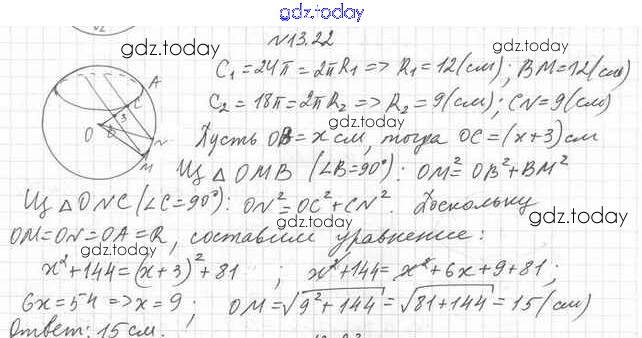 gdz.today
№13.22
gdz.today
gdz.today
C₁=24π=2πR₁=>R₁=12(см); BM=12(см)
A
C
3
O
B
N
M
C₂=18π=2πR₂=>R₂=9(см); CN=9(см)
gdz.today
Пусть OB=x см, тогда OC=(x+3)см
Из △OMB (∠B=90°): OM²=OB²+BM²
gdz.today
Из △ONC(∠C=90°): ON²=OC²+CN². Поскольку
gdz.today
gdz.today
OM=ON=OA=R, составим уравнение:
gdz.today
x²+144=(x+3)²+81 ; x²+144=x²+6x+9+81;
6x=54=>x=9; OM=√9²+144=√81+144=15(см)
Ответ: 15см.